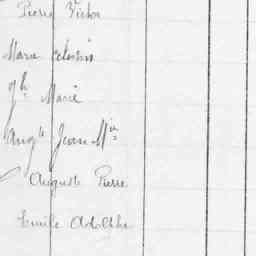 Pierre Victor
Marie Célestin
Jh Marie
Augte Jean-Mie
Auguste Pierre
Emile Adolphe